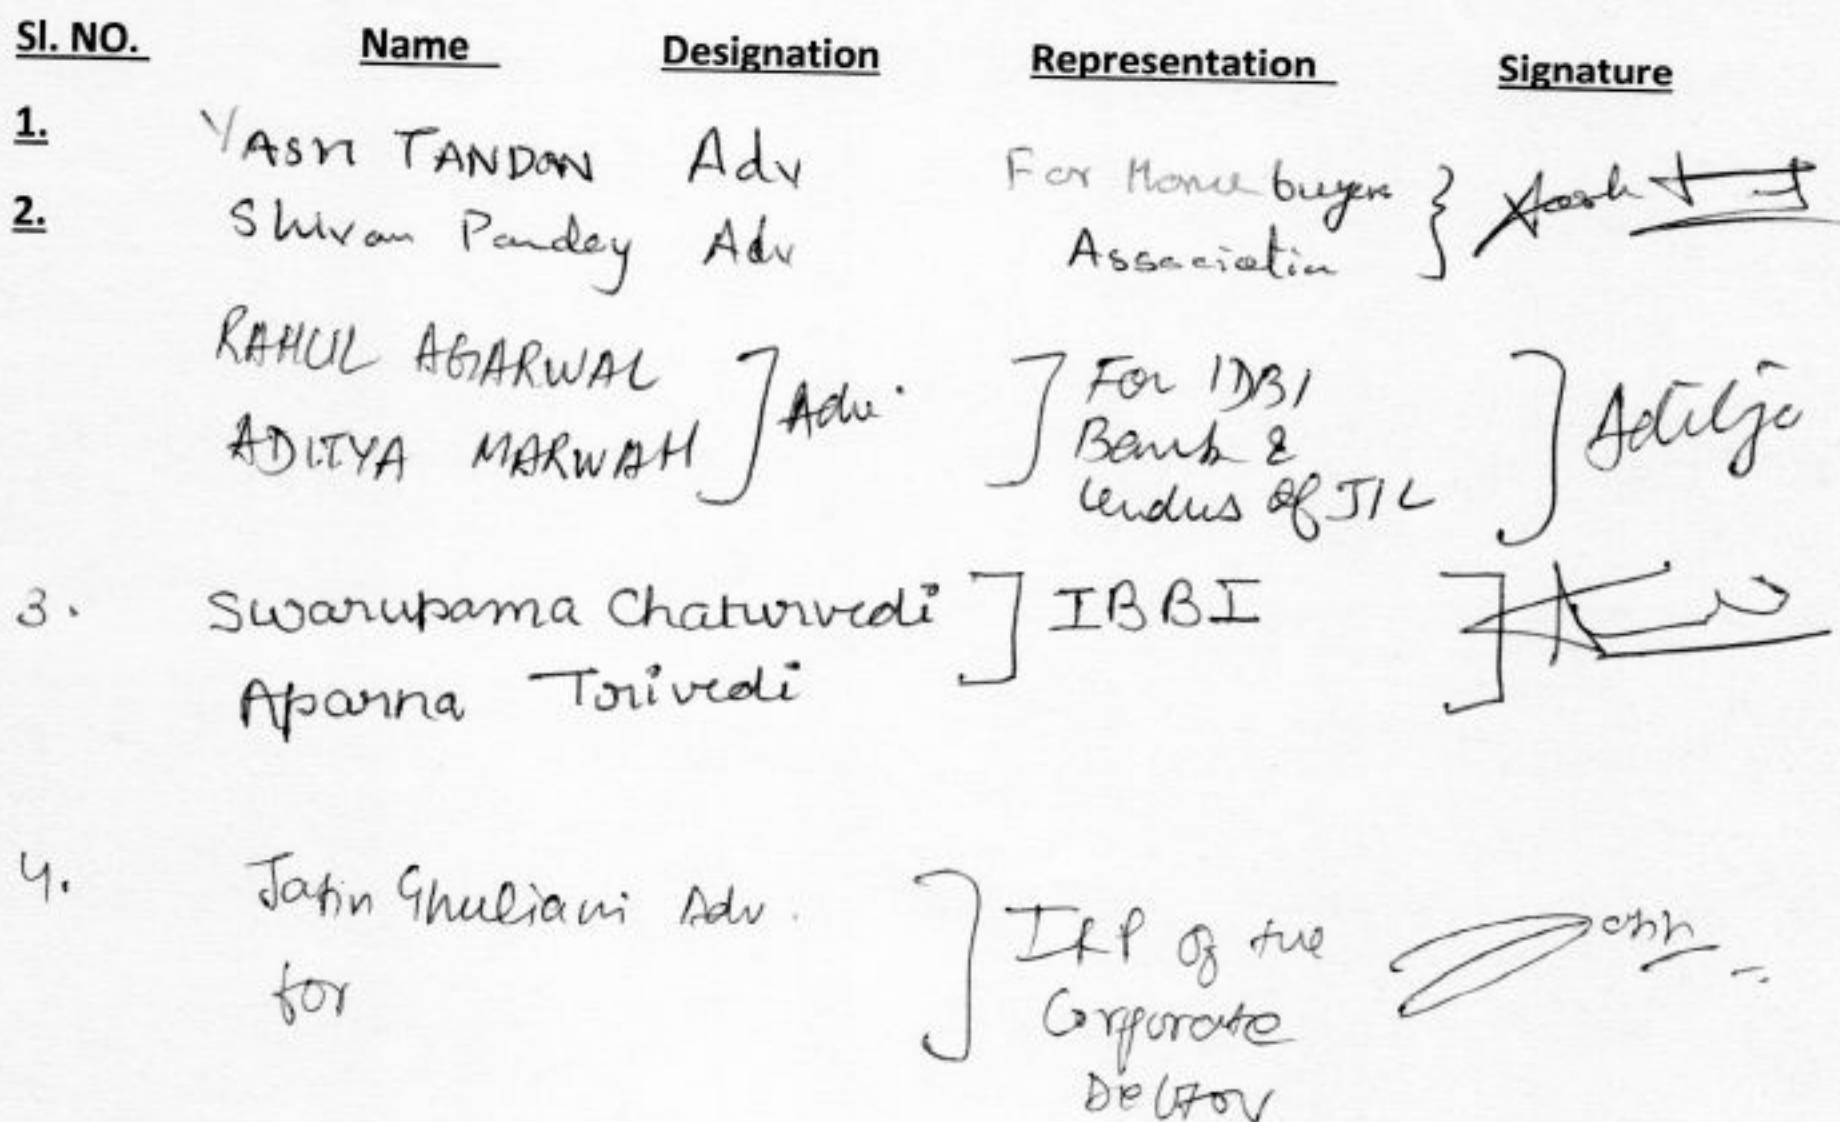 Sl. NO. Name Designation Representation Signature
1. YASH TANDON Adv For Home buyers
2. Shivam Pandey Adv Association
RAHUL AGARWAL
ADITYA MARWAH Adv. For IDBI
Bank &
lenders of JIL Aditya
3. Swarupama Chaturvedi IBBI
Aparna Trivedi
4. Jatin Ghuliani Adv.
for
IRP of the
Corporate
Debtor